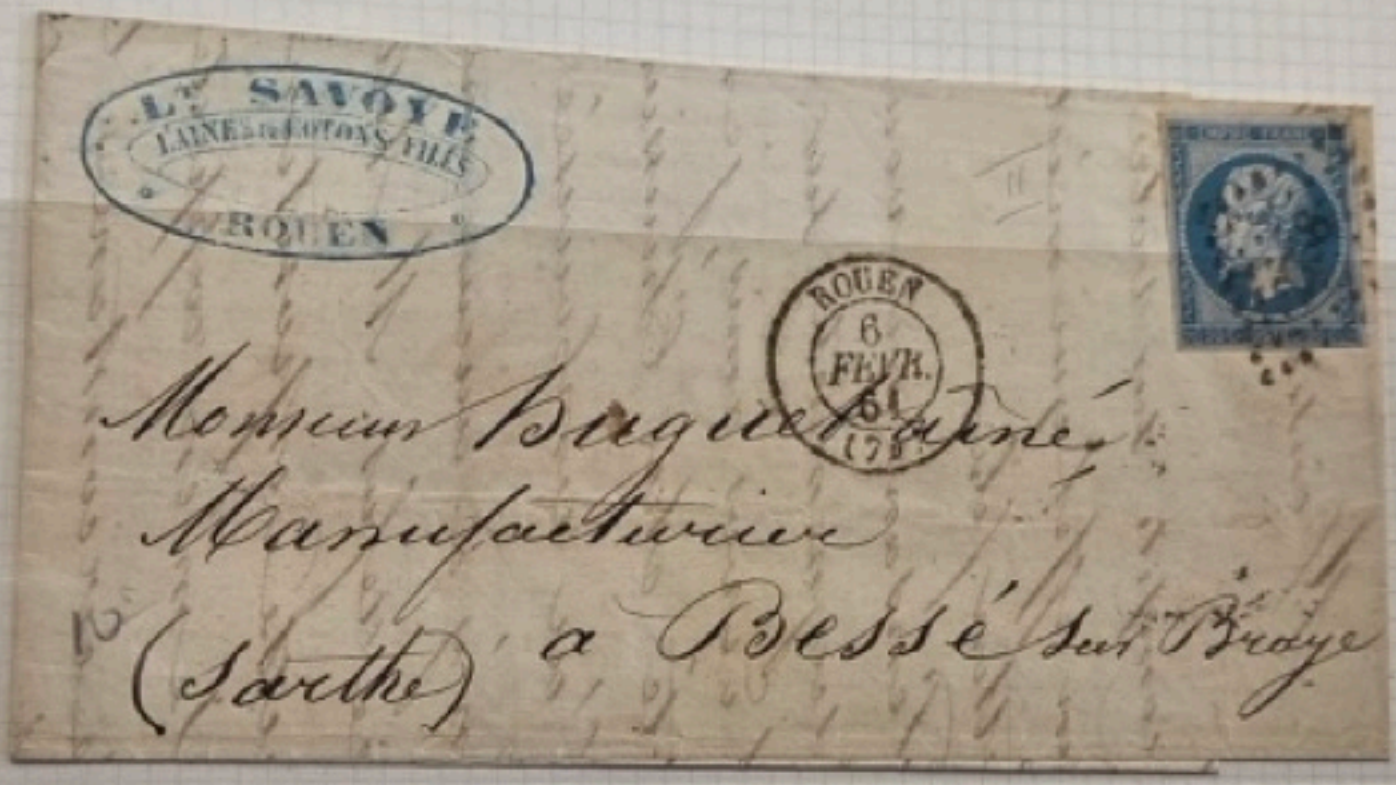 LT SAVOYE
LAINES & COTONS FILÉS
ROUEN
EMPIRE FRANC
ROUEN
6
FEVR.
61
Monsieur Huguet ainé
Manufacturier
a Bessé sur Braye
(Sarthe)
2